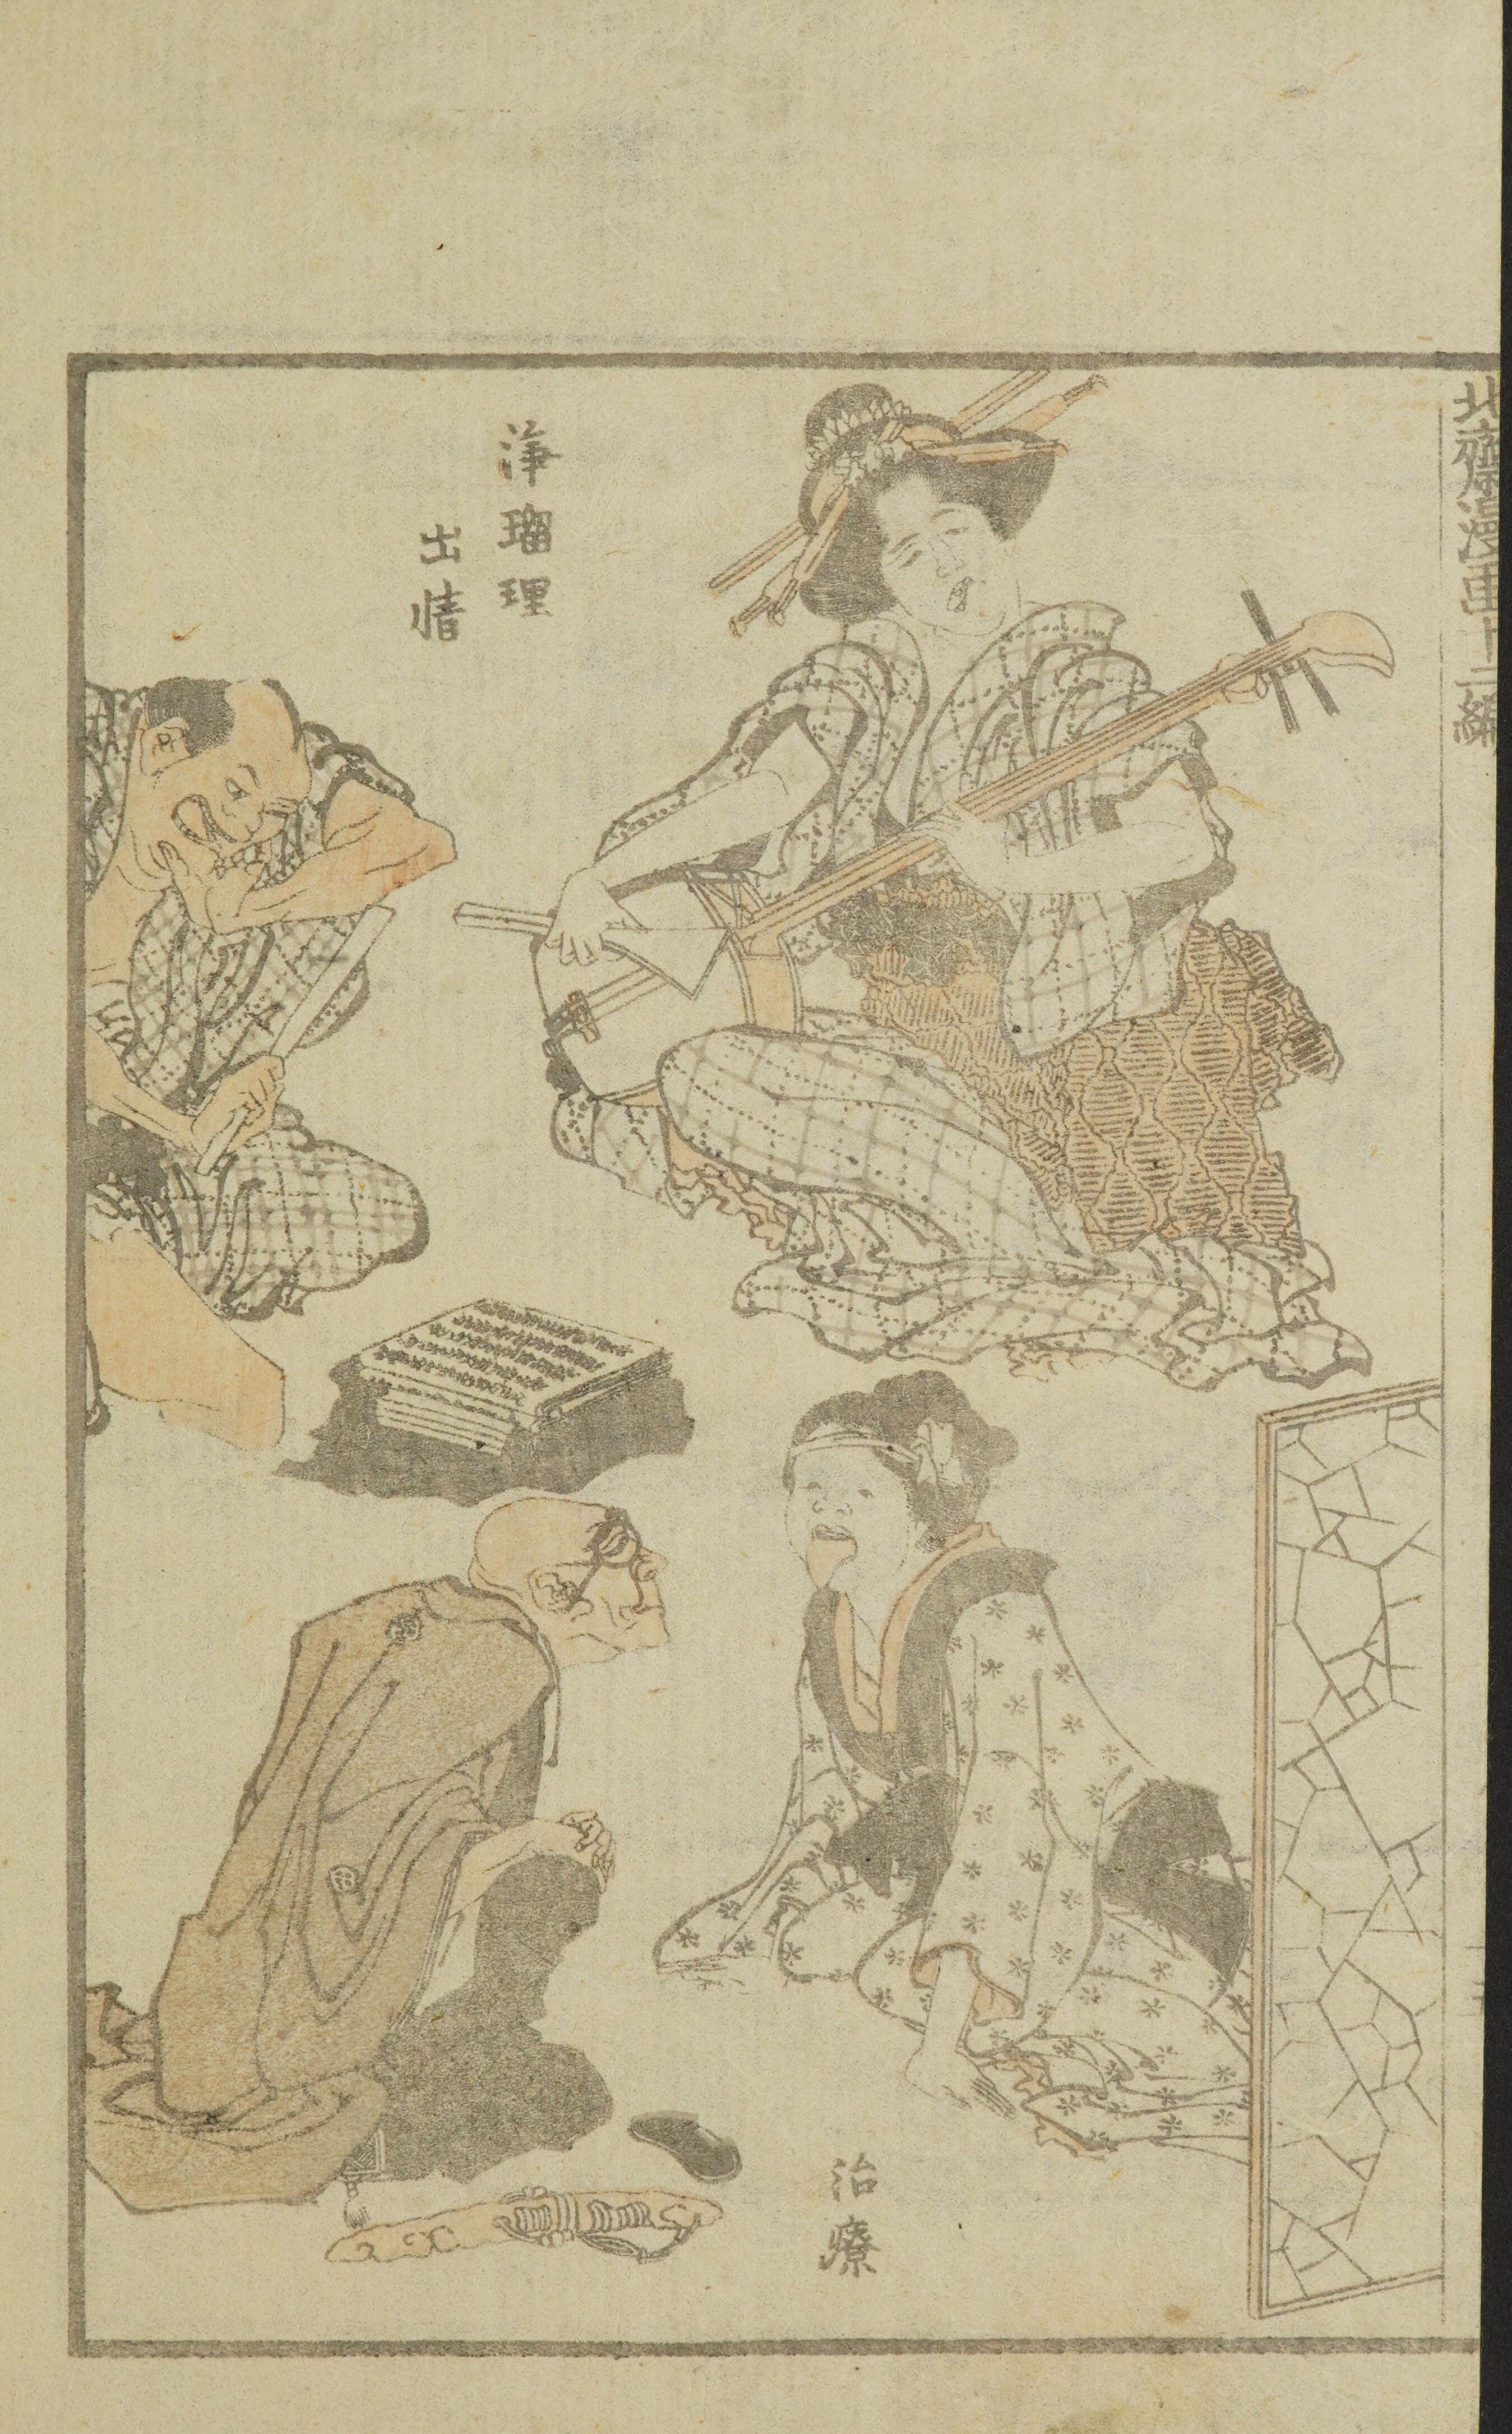 北齋漫画十二編
浄瑠理
出情
治療